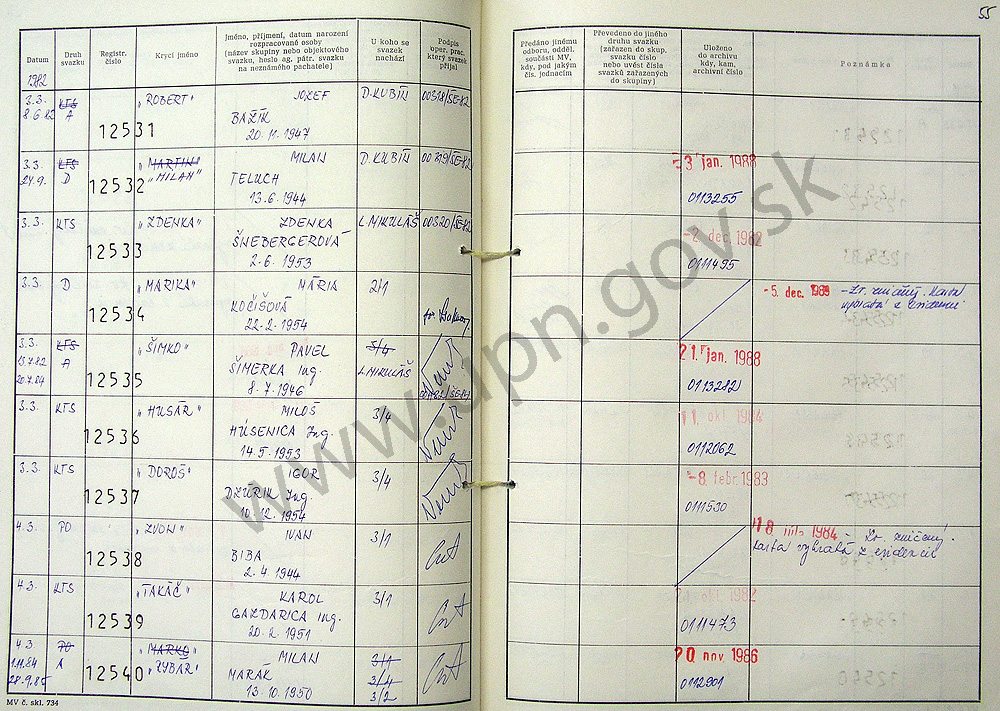 55
Datum
Druh svazku
Registr. číslo
Krycí jméno
Jméno, příjmení, datum narození rozpracované osoby (název skupiny nebo objektového svazku, heslo ag. pátr. svazku na neznámého pachatele)
U koho se svazek nachází
Podpis oper. prac., který svazek přijal
Předáno jinému odboru, odděl., součásti MV, kdy, pod jakým čís. jednacím
Převedeno do jiného druhu svazku (zařazen do skup. svazku nebo uvést čísla svazků zařazených do skupiny)
Uloženo do archivu kdy, kam, archivní číslo
Poznámka
1982
3.3. KTS "ROBERT" JOZEF D.KUBÍN 00318/ŠE-82
8.6.82 A
12531 BAŽÍK
20.11.1947
3.3. KTS "MARTIN" MILAN D.KUBÍN 00319/ŠE-82 -3. jan. 1988
24.9. D "MILAN"
12532 TELUCH
13.6.1944 0113255
3.3. KTS "ZDENKA" ZDENKA L.MIKULÁŠ 00320/ŠE-82 -2. dec. 1982
12533 ŠNEBERGEROVÁ
2.6.1953 0111495
3.3. D "MARIKA" MÁRIA 2/1 -5. dec. 1989 - Zv. zničený. Karta
vybratá z evidencie
12534 KOČIŠOVÁ
22.2.1954
3.3. KTS "ŠIMKO" PAVEL 5/4 21. jan. 1988
15.7.82 A
20.7.84 L.MIKULÁŠ
12535 ŠIMERKA Ing.
8.7.1946 0113282
3.3. KTS "HUSÁR" MILOŠ 3/4 11. okt. 1984
12536 HÚSENICA Ing.
14.5.1953 0112062
3.3. KTS "DOROŠ" IGOR 3/4 -8. febr. 1983
12537 DZURIK Ing.
10.12.1954 0111530
4.3. PO "ZVON" IVAN 3/1 18. 1984 - Zv. zničený.
Karta vybratá z evidencie
12538 BIBA
2.4.1944
4.3. KTS "TAKÁČ" KAROL 3/1 okt. 1982
12539 GAZDARICA Ing.
20.2.1951 0111473
4.3 PO "MARKO" MILAN 3/1 20 nov 1986
1.11.84 A "RYBÁR" 3/4
28.9.85 12540 MARÁK 3/2
13.10.1950 0112901
MV č. skl. 734
www.upn.gov.sk